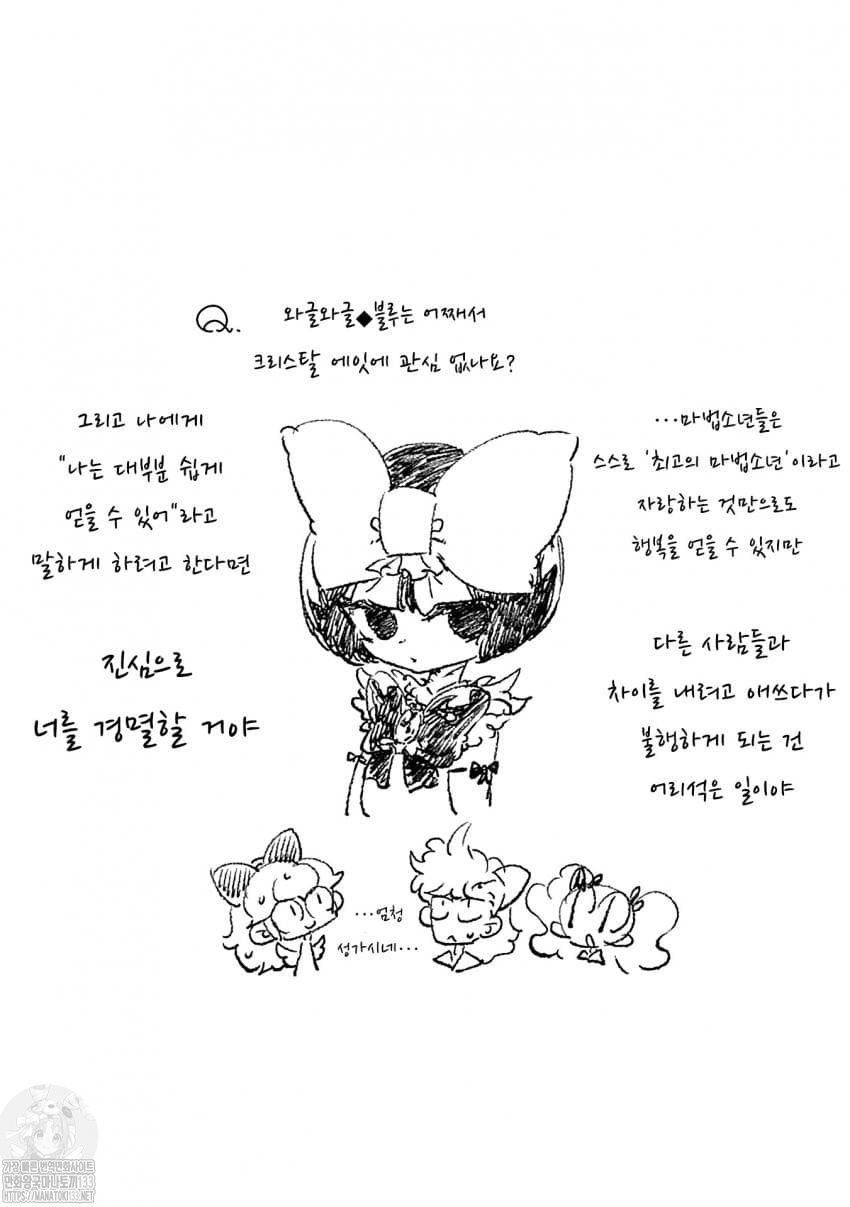 Q.
와글와글◆블루는 어째서
크리스탈 에잇에 관심 없나요?
…마법소년들은
스스로 '최고의 마법소년'이라고
자랑하는 것만으로도
행복을 얻을 수 있지만
다른 사람들과
차이를 내려고 애쓰다가
불행하게 되는 건
어리석은 일이야
그리고 나에게
"나는 대부분 쉽게
얻을 수 있어"라고
말하게 하려고 한다면
진심으로
너를 경멸할 거야
…엄청
성가시네…
가장 빠른 번역만화사이트
만화왕국마나토끼133
HTTPS://MANATOKI133.NET